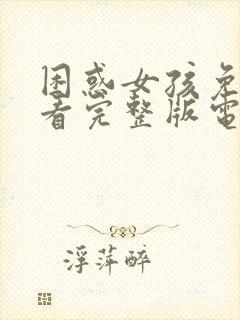 困惑女孩免
看完整版電
浮萍醉